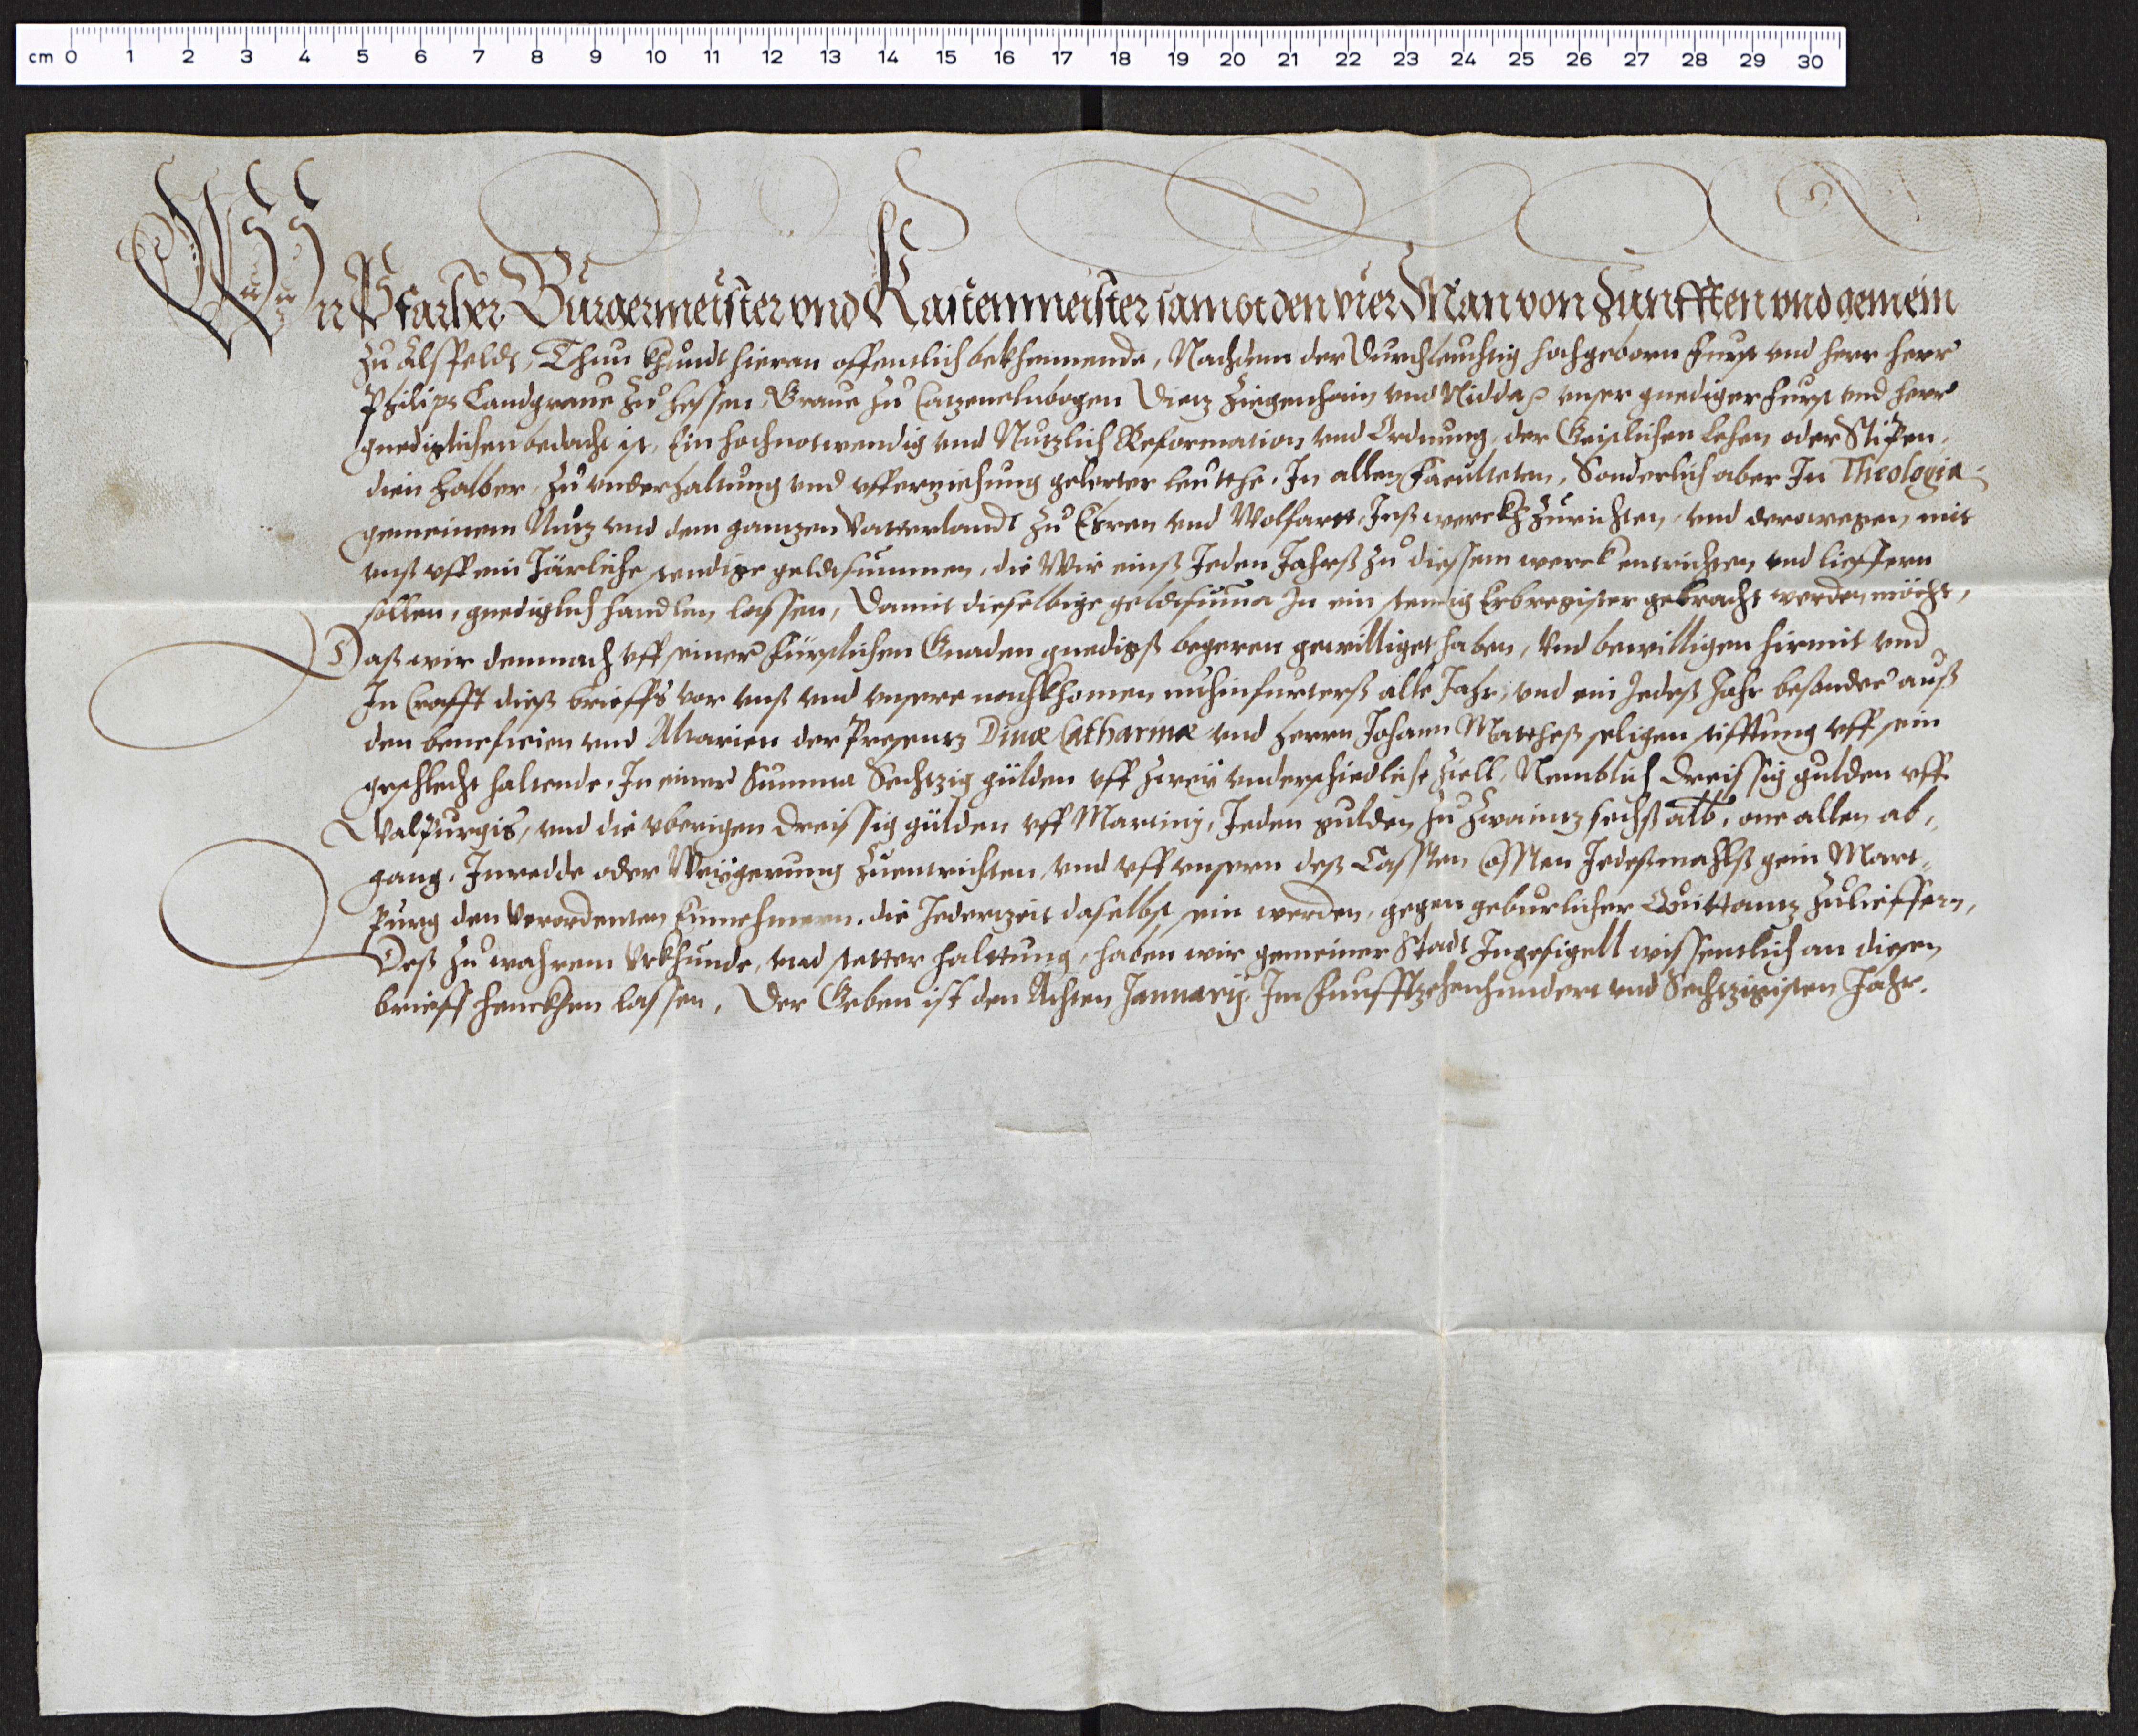 cm 0 1 2 3 4 5 6 7 8 9 10 11 12 13 14 15 16 17 18 19 20 21 22 23 24 25 26 27 28 29 30
Wir Pfarher Burgermeister vnd Kastenmeister sampt den vier Man von Zunfften vnd gemein
zu Alsfeldt, Thun khundt hieran offentlich bekhennende, Nachdem der Durchleuchtig hochgeborn Furst vnd herr herr
Philips Landgraue zu hessen, Graue zu Catzenelnbogen Dietz Ziegenhain vnd Nidda ꝛc vnser gnediger Furst vnd herr
gnediglichen bedacht ist, Ein hochnotwendig vnd Nutzlich Reformation vnd Ordnung, der Geistlichen Lehen oder Stipen-
dien halber, zu vnderhaltung vnd vfferziehung gelerter Leutthe, In allen Faculteten, Sonderlich aber In Theologia
gemeinem Nutz vnd dem gantzen Vatterlandt zu Ehren vnd Wolfartt, Inß werckh zurichten, vnd derowegen mit
vnß vff ein Järliche stendige geldtsummen, die Wir einß Jeden Jahrß zu diessem werck entrichten vnd lieffern
sollen, gnediglich handlen lassen, Damit dieselbige geldtsuma In ein stendig Erbregister gebracht werden möcht,
Daß wir demnach vff seiner Fürstlichen Gnaden gnedigß begeren gewilliget haben, Vnd bewilligen hirmit vnd
In Crafft dieß brieffs vor vnß vnd vnsere nachkhomen nuhinfurterß alle Jahr, vnd ein Jedeß Jahr besonder auß
den beneficien vnd Altarien der Presentz Diuæ Catharinæ vnd herrn Johann Mattheß seligen stifftung vff sein
geschlecht haltende, In einer Summa Sechtzig gülden vff zweÿ vnderschiedliche Ziell, Nemblich Dreissig gulden vff
Walpurgis, vnd die vberigen Dreissig gülden vff Martinj, Jeden gulden zu zwaintzsechß alb, one allen ab-
gang, Inredde oder Weÿgerung zuentrichten, vnd vff vnsern deß Cassten Cossten Jedeßmahlß gein Mart-
purg den verordenten Einnehmern, die Jedertzeit daselbst sein werden, gegen geburlicher Quittantz zulieffern,
Deß zu wahrem Vrkhunde, vnd stetter halttung, haben wir gemeiner Stadt Ingesigell wissentlich an diesen
brieff henckhen lassen, Der Geben ist den Achten Januarij. Im Funfftzehenhundert vnd Sechtzigisten Jahr.